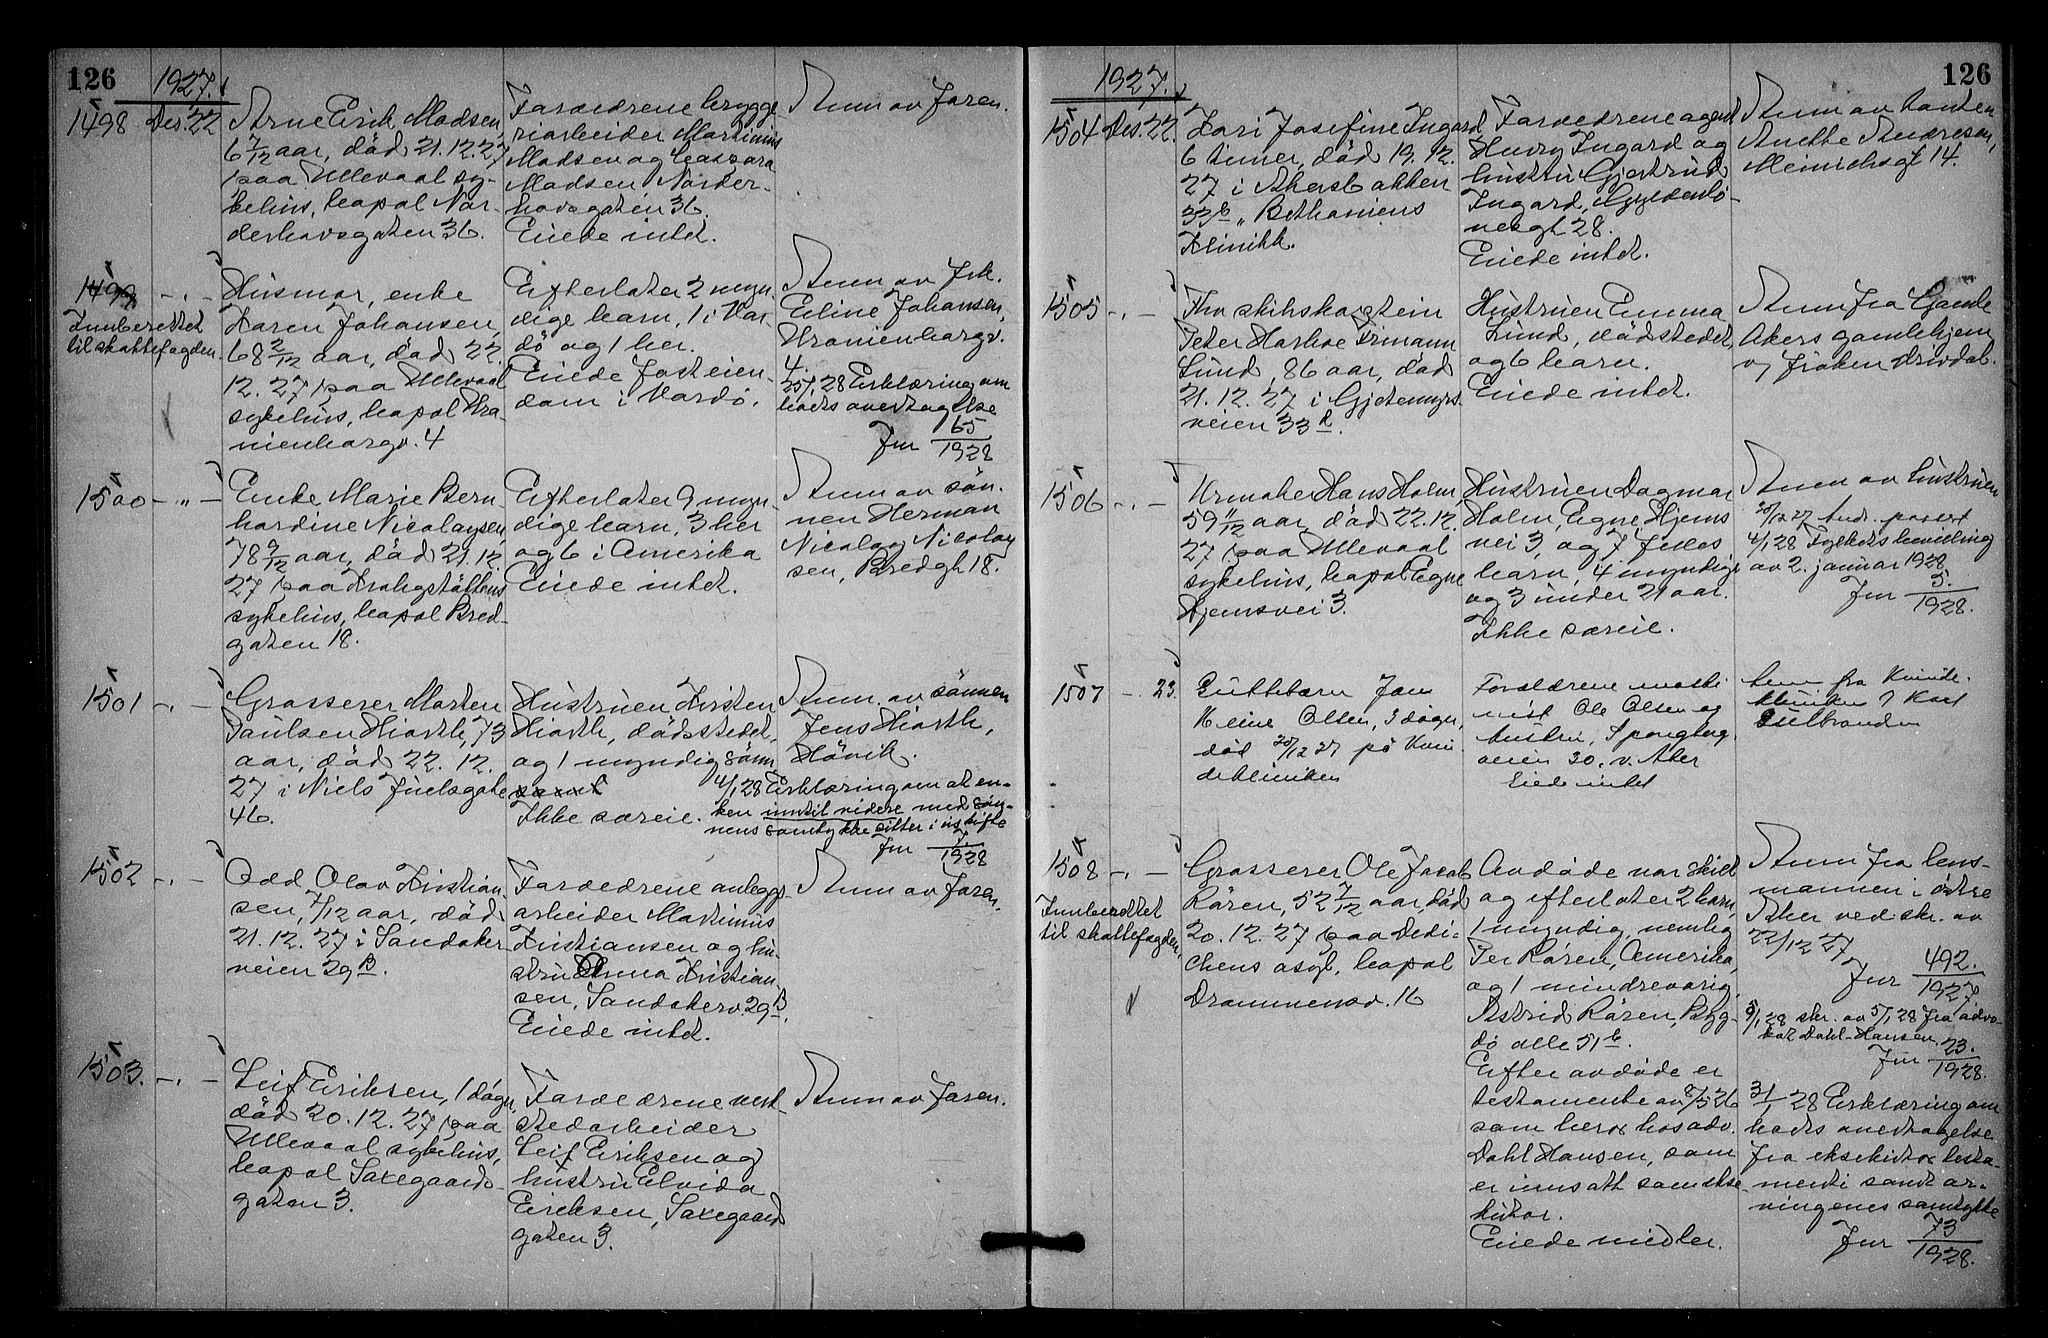 126
1927.
1498 Des. 22
Arne Erik Madsen
6 7/12 aar, død 21.12.27
paa Ullevaal sy-
kehus, bopæl Nor-
derhovsgaten 36.
Forældrene brygge-
riarbeider Martinius
Madsen og
Madsen, Norder-
hovsgaten 36.
Eiede intet.
Anm av faren.
1499 - " -
Innberettet
til skattefogden.
Husmor, enke
Karen Johansen,
68 2/12 aar, død 22.
12.27 paa Ullevaal
sykehus, bopæl Ura-
nienborgv. 4
Efterlater 2 myn-
dige barn, 1 i Var-
dø og 1 her.
Eiede fast eien-
dom i Vardø.
Anm av frk.
Eline Johansen,
Uranienborgv.
4.
25/1 28 Erklæring om
boets overtagelse
Jnr 65/1928
1500 - " -
Enke Marie Bern-
hardine Nicolaysen,
78 9/12 aar, død 21.12.
27 paa Krohgstøttens
sykehus, bopæl Bred-
gaten 18.
Efterlater 9 myn-
dige barn, 3 her
og 6 i Amerika
Eiede intet.
Anm av søn-
nen Herman
Nicolay Nicolay
sen, Bredgt 18.
1501 - " -
Grosserer Morten
Paulsen Hiorth, 73
aar, død 22.12.
27 i Niels Juelsgate
46.
Hustruen Kirsten
Hiorth, dødsstedet,
og 1 myndig sønn
Ikke særeie.
Anm. av sønnen
Jens Hiorth,
Høvik.
4/1 28 Erklæring om at en-
ken inntil videre med søn-
nens samtykke sitter i uskifte
Jnr 7/1928
1502 - " -
Odd Olav Kristian-
sen, 7/12 aar, død
21.12.27 i Sandaker
veien 29 B.
Forældrene anleggs-
arbeider Martinius
Kristiansen og hu-
stru Anna Kristian-
sen, Sandakerv. 29 B.
Eiede intet.
Anm av faren.
1503. - " -
Leif Eriksen, 1 døgn,
død 20.12.27 paa
Ullevaal sykehus,
bopæl Saxegaards-
gaten 3.
Forældrene verk-
stedarbeider
Leif Eriksen og
hustru Elvida
Eriksen, Saxegaard
gaten 3.
Anm av faren.
126
1927.
1504 Des. 22.
Kari Josefine Ingard,
6 timer, død 19.12.
27 i Akersbakken
33 b "Bethaniens
Klinikk.
Forældrene agent
Henry Ingard og
hustru Gjertrud
Ingard, Gyldenlø-
vesgt 28.
Eiede intet.
Anm av tanten
Anette Andresen,
Meinichsgt 14.
1505 - " -
Fhv skibskaptein
Peter Harboe Frimann
Lund 86 aar, død
21.12.27 i Gjetemyrs-
veien 33 d.
Hustruen Emma
Lund, dødstedet,
og 6 barn.
Eiede intet.
Anm fra Gamle
Akers gamlehjem
v/ frøken
1506 - " -
Urmaker Hans Holm
59 11/12 aar, død 22.12.
27 paa Ullevaal
sykehus, bopæl Egne
Hjemsvei 3.
Hustruen Dagmar
Holm, Egne Hjems
vei 3, og 7 felles
barn, 4 myndige
og 3 under 21 aar.
Ikke særeie.
Anm av hustruen
4/1 28 Fylkets bevilling
av 2. januar 1928
Jnr 5./1928.
1507 - . 23.
Guttebarn Jan
Olsen, 3 døgn,
død 20/12 27 på Kvin-
dekliniken
Forældrene maski-
nist Ole Olsen og
hustru, Spongberg
veien 30. v. Aker
Eiede intet
Anm fra Kvinde-
kliniken v Karl
1508 - " -
Innberettet
til skattefogden,
Grosserer Ole Jacob
Røren, 52 7/12 aar, død
20.12.27 paa Dedi-
chens asyl, bopæl
Drammensv. 16
Avdøde var skilt
og efterlater 2 barn,
1 myndig, nemlig
Per Røren, Amerika,
og 1 mindreaarig,
Astrid Røren, Byg-
dø alle 51 b.
Efter avdøde er
testamente av 8/5 26
som beror hos adv.
Dahl Hansen, som
er innsatt som ekse-
kutor.
Eiede midler.
Anm fra lens-
mannen i østre
Aker ved skr. av
22/12 27
Jnr 492./1927
9/1 28 skr. av 5/1 28 fra advo-
kat Dahl-Hansen.
Jnr 23./1928.
31/1 28 Erklæring om
boets overtagelse
fra eksekutor testa-
menti samt ar-
vingenes samtykke
Jnr 73/1928.